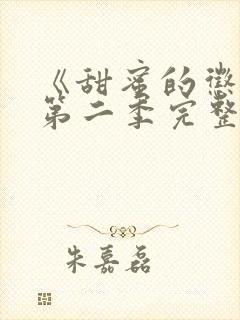 《甜蜜的惩
第二季完整
朱嘉磊